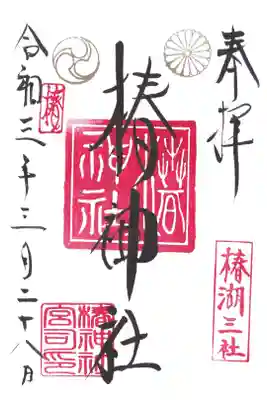 奉拝
椿湖三社
椿神社
椿神社
令和三年三月二十八日
椿神社
宮司之印